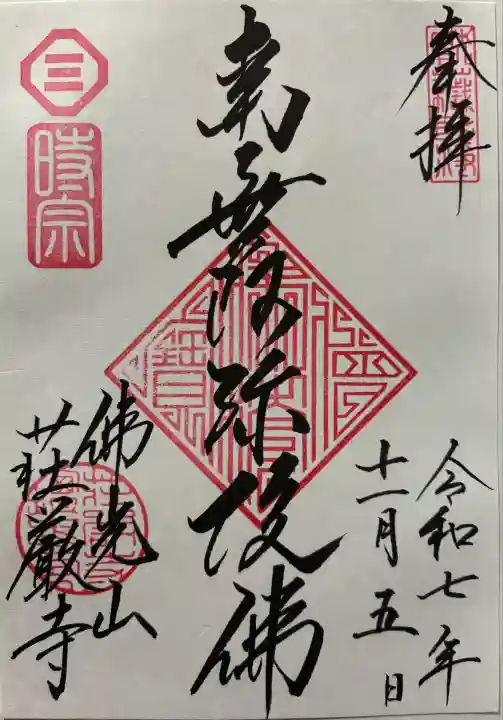 奉拝
南無阿弥陀佛
令和七年
十一月五日
佛光山
荘厳寺
三
時宗